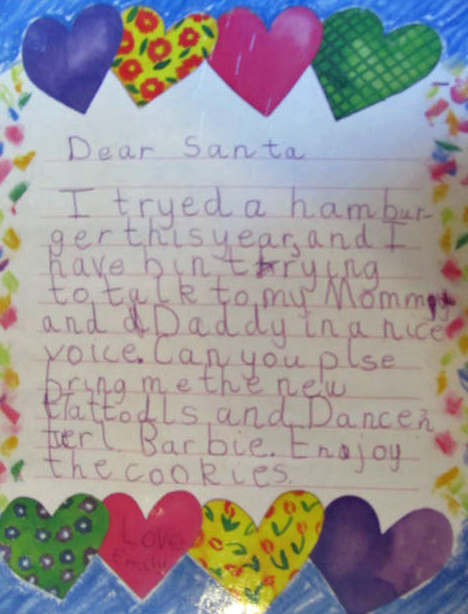 Dear Santa
I tryed a hambur-
ger this year, and I
have bin trying
to talk to my Mommy
and Daddy in a nice
voice. Can you plse
bring me the new
and Dancen
Barbie. Enajoy
the cookies.
Love
Emily